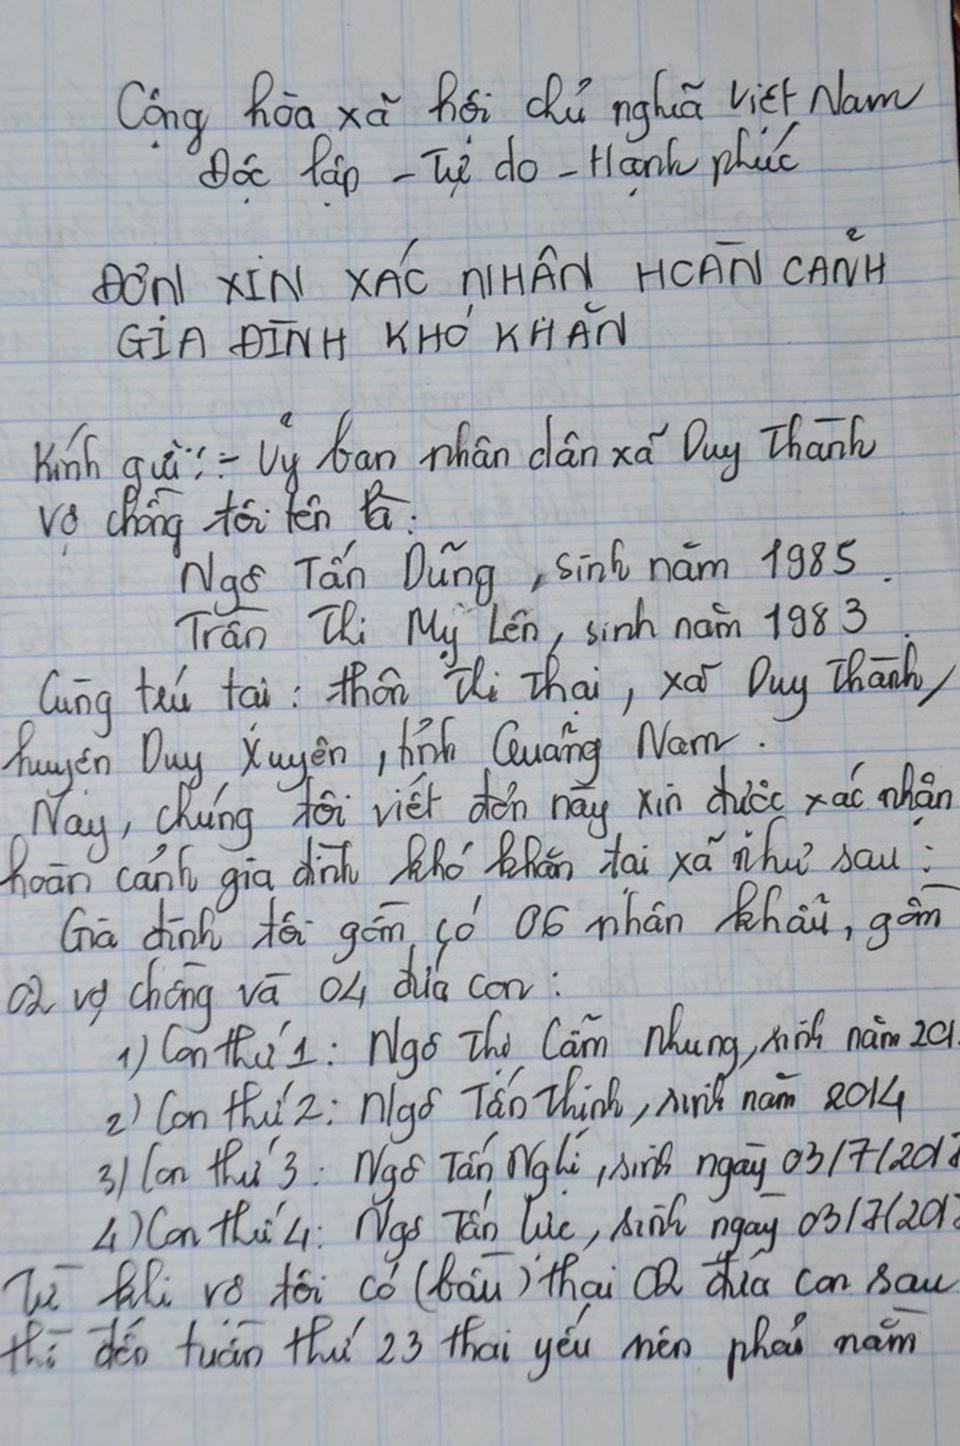 Cộng hòa xã hội chủ nghĩa Việt Nam
Độc lập - Tự do - Hạnh phúc
ĐƠN XIN XÁC NHẬN HOÀN CẢNH
GIA ĐÌNH KHÓ KHĂN
Kính gửi: - Uỷ ban nhân dân xã Duy Thành
Vợ chồng tôi tên là:
Ngô Tấn Dũng, sinh năm 1985.
Trần Thị Mỹ Lên, sinh năm 1983.
Cùng trú tại: thôn Thi Thại, xã Duy Thành,
huyện Duy Xuyên, tỉnh Quảng Nam.
Nay, chúng tôi viết đơn này xin được xác nhận
hoàn cảnh gia đình khó khăn tại xã như sau:
Gia đình tôi gồm có 06 nhân khẩu, gồm
02 vợ chồng và 04 đứa con:
1) Con thứ 1: Ngô Thị Cẩm Nhung, sinh năm
2) Con thứ 2: Ngô Tấn Thịnh, sinh năm 2014
3) Con thứ 3: Ngô Tấn Nghị, sinh ngày
4) Con thứ 4: Ngô Tấn Lực, sinh ngày
Từ khi vợ tôi có (bầu) thai 02 đứa con sau
thì đến tuần thứ 23 thai yếu nên phải nằm